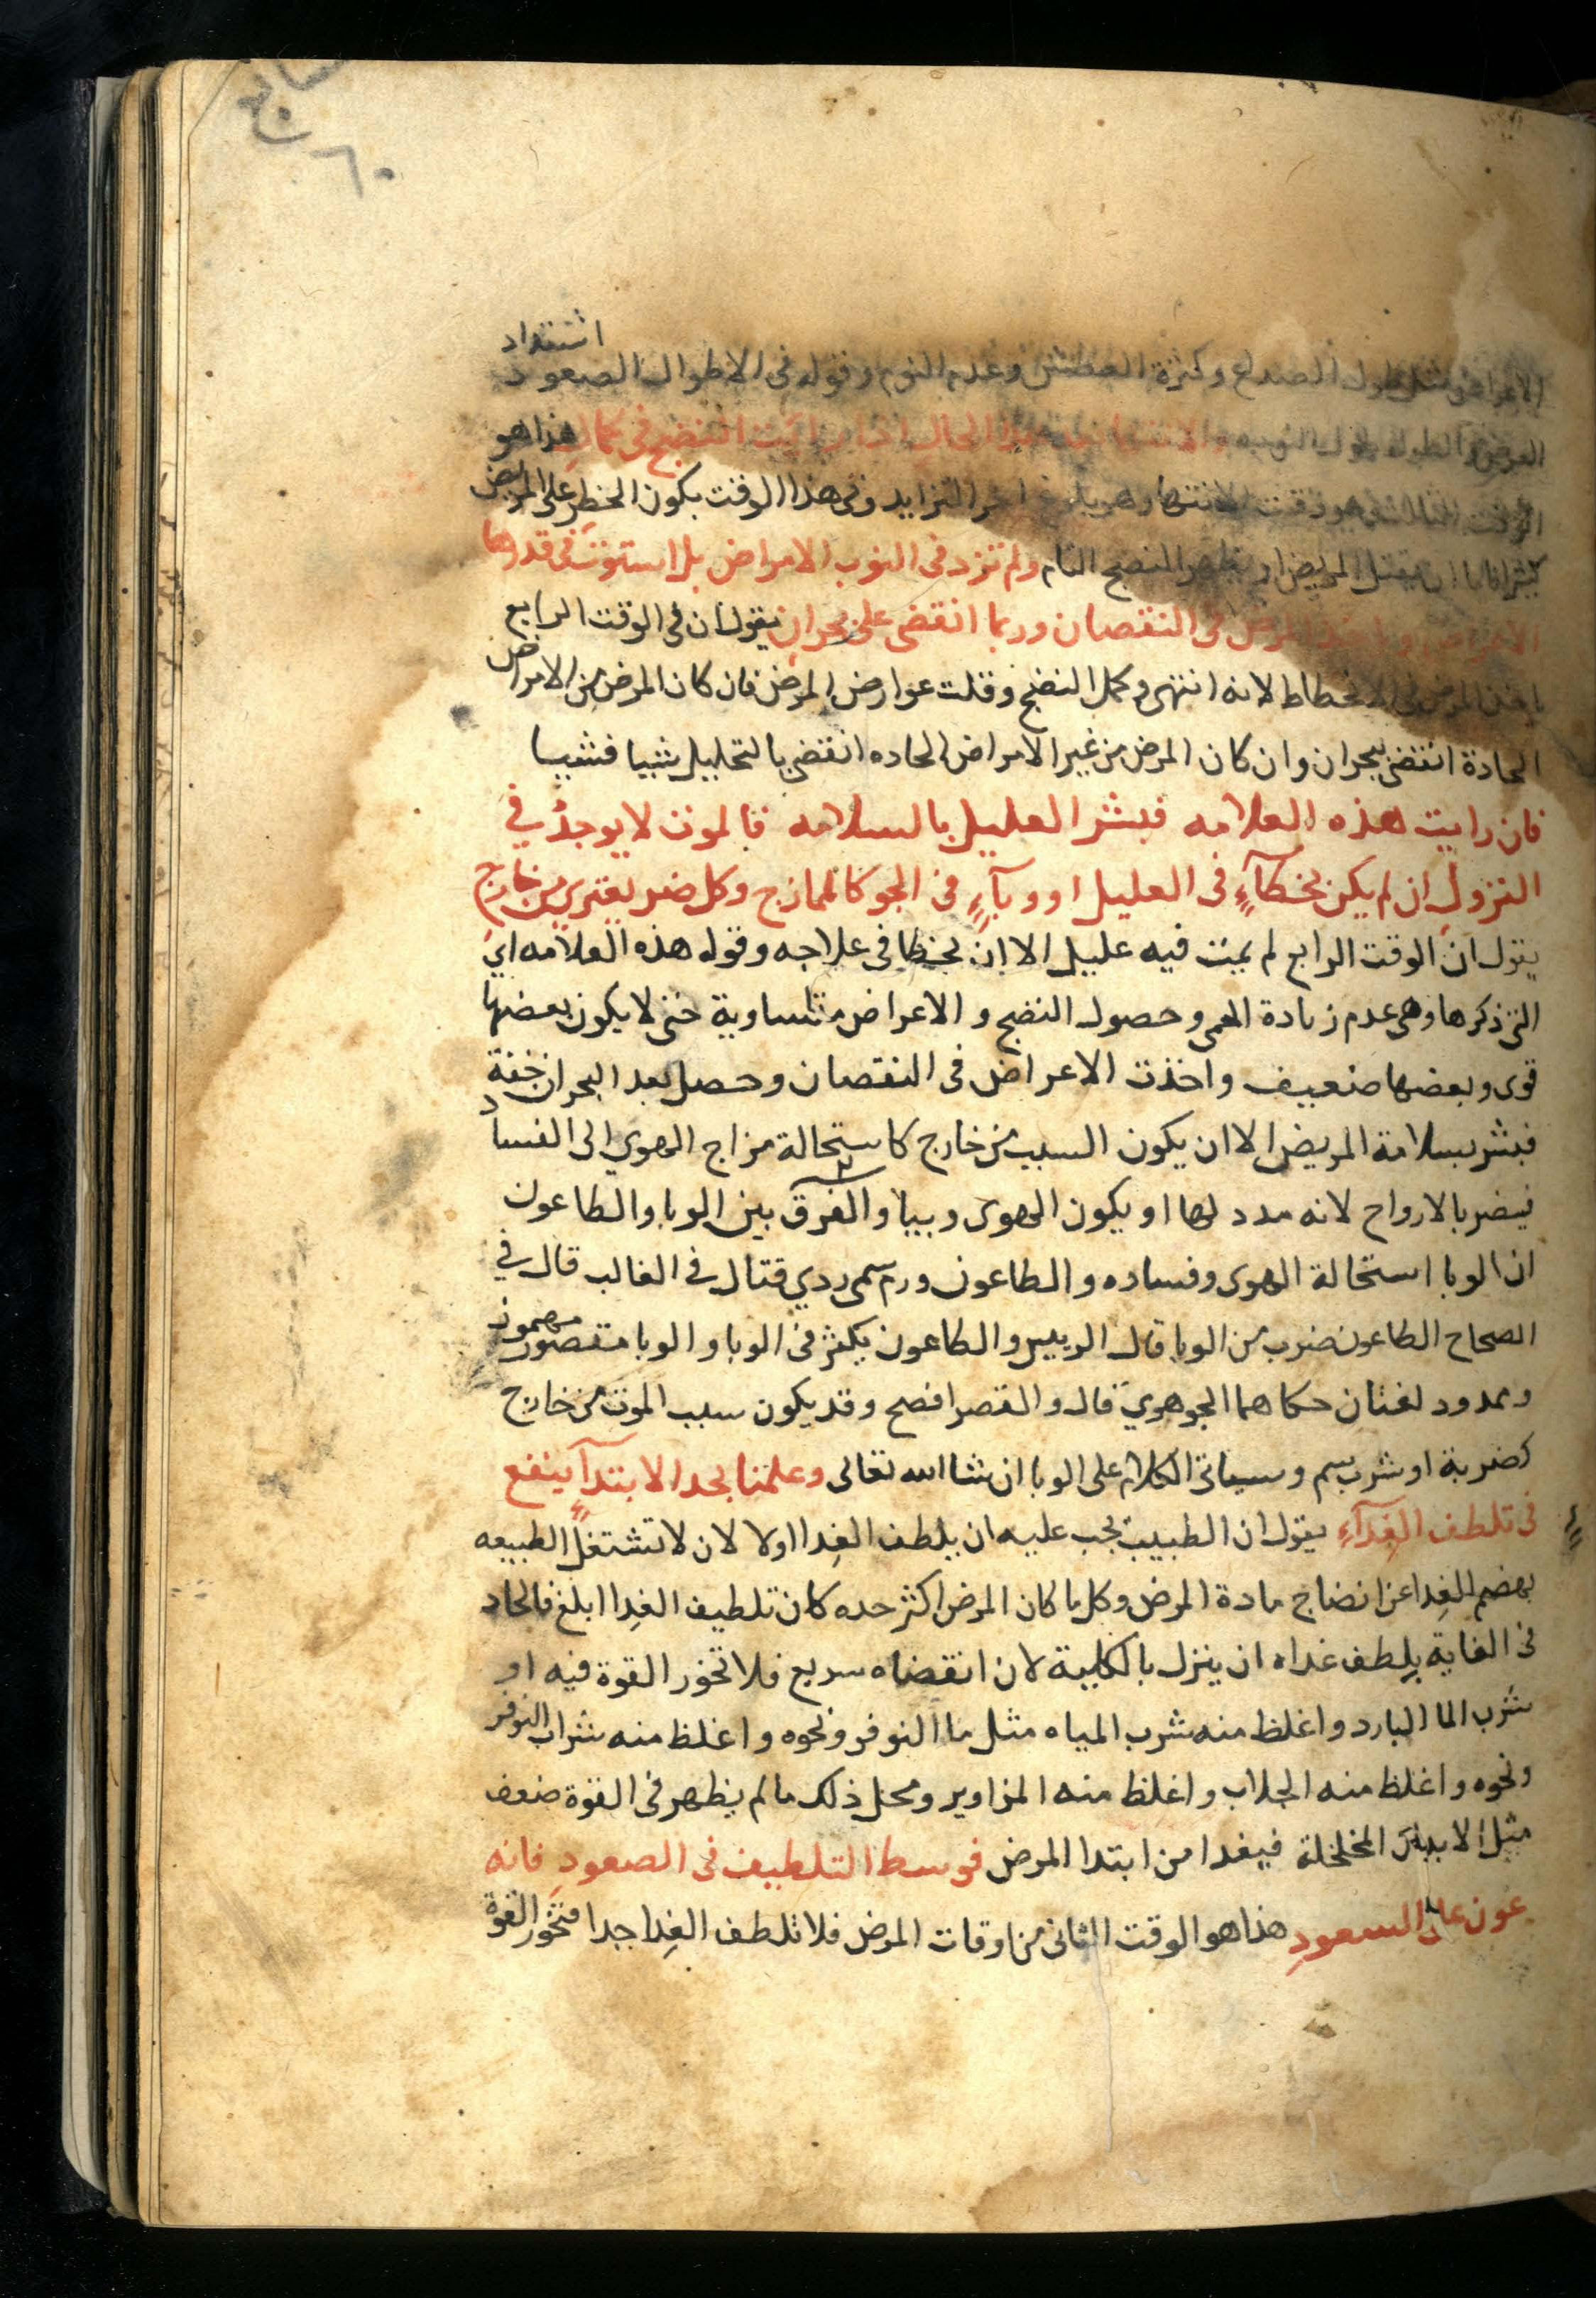 ٦٠
اشتداد
الاعراض مثل طول الصداع وكثرة العطش وعدم النوم وقوله فى الاطوال الصعود
العرض والطول طول النوبه والانتها بعد هذا الحال اذا رايت النضج فى كمال هذا هو
الوقت الثالث هو وقت الانتها وهو بلوغ اخر التزايد وفى هذا الوقت يكون الخطر على المريض
كثيرا فاما ان يقتل المريض او يظهر النضج التام ولم تزد فى النوب الامراض بل استوت فى قدرها
الاعراض المرض فى النقصان وربما انقضى على بحران يقول ان فى الوقت الرابع
ياخذ المرض فى الانحطاط لانه انتهى وكمل النضج وقلت عوارض المرض فان كان المرض من الامراض
الحادة انقضى ببحران وان كان المرض من غير الامراض الحاده انقضى بالتحليل شيا فشيا
فان رايت هذه العلامه فبشر العليل بالسلامه فالموت لا يوجد في
النزول ان لم يكن بخطآءٍ فى العليل او وبآءٍ فى الجو كالممازج وكل ضر يعترى من خارج
يقول ان الوقت الرابع لم يمت فيه عليل الا ان يخطا فى علاجه وقوله هذه العلامه اي
التى ذكرها وهى عدم زيادة الحمى وحصول النضج و الاعراض متساوية حتى لا يكون بعضها
قوى وبعضها ضعيف واخذت الاعراض فى النقصان وحصل بعد البحران خفة
فبشر بسلامة المريض الا ان يكون السبب من خارج كاستحالة مزاج الهوى الى الفساد
فيضر بالارواح لانه مدد لها او يكون الهوى وبيا والفرق بين الوبا والطاعون
ان الوبا استحالة الهوى وفساده والطاعون ورم سمى ردي قتال فى الغالب قال في
الصحاح الطاعون ضرب من الوبا قال الرييس والطاعون يكثر فى الوبا والوبا مقصور مهموز
وممدود لغتان حكاهما الجوهري قال والقصر افصح وقد يكون سبب الموت من خارج
كضربة او شرب سم وسياتى الكلام على الوبا ان شا الله تعالى وعلمنا بحد الابتدآءِ ينفع
فى تلطف الغِدآءِ يقول ان الطبيب يجب عليه ان يلطف الغِدا اولا لان لا تشتغل الطبيعه
بهضم الغِدا عن انضاج مادة المرض وكل ما كان المرض اكثر حده كان تلطيف الغِدا ابلغ فالحاد
فى الغاية يلطف غداه ان ينزل بالكلية لان انقضاه سريع فلا تخور القوة فيه او
شرب الما البارد واغلظ منه شرب المياه مثل ما النوفر ونحوه واغلظ منه شراب النوفر
ونحوه واغلظ منه الجلاب واغلظ منه المزاوير ومحل ذلك ما لم يظهر فى القوة ضعف
مثل الابدان المخلخلة فيغدا من ابتدا المرض فوسط التلطيف فى الصعود فانه
عون على السعودِ هذا هو الوقت الثانى من اوقات المرض فلا تلطف الغِدا جدا فتخور القوة